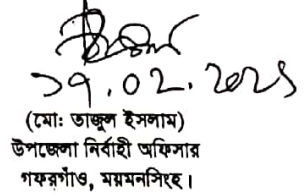 ১৭.০২.২০২১
(মো: তাজুল ইসলাম)
উপজেলা নির্বাহী অফিসার
গফরগাঁও, ময়মনসিংহ।